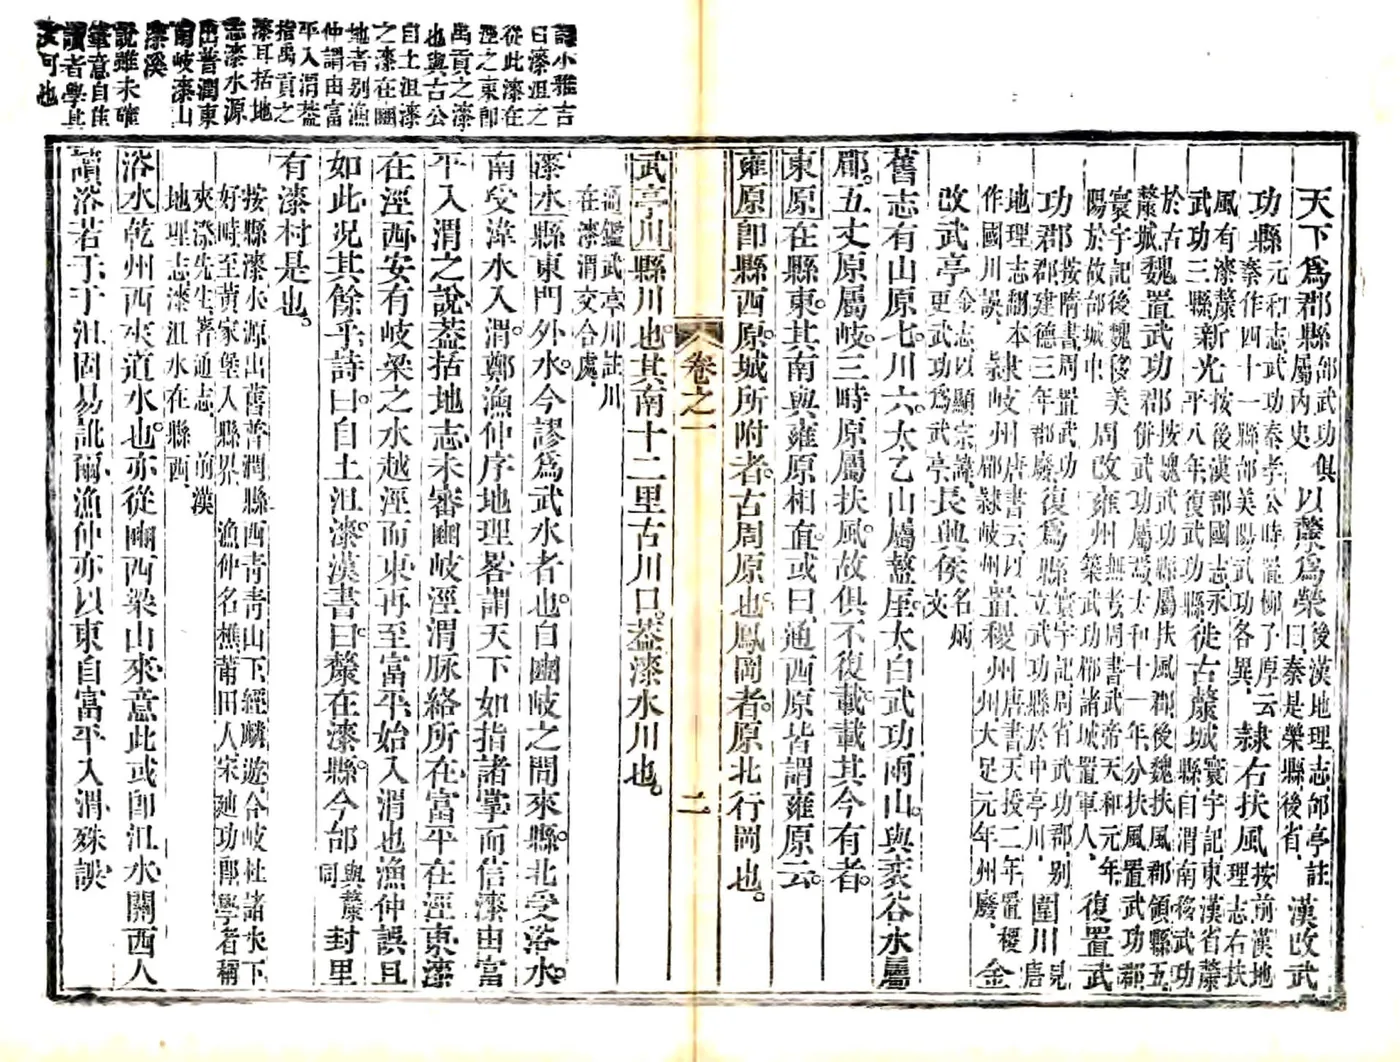 詩小雅吉
曰漆沮之
從此漆在
涇之東卽
禹貢之漆
也與古公
自土沮漆
之漆在豳
地者別漁
仲謂由富
平入渭葢
指禹貢之
漆耳括地
志漆水源
出普潤東
南岐漆山
漆溪
說雖未確
筆意自佳
讀者學其
文可也
天下爲郡縣邰武功俱屬內史以斄爲榮後漢地理志邰亭註曰秦是榮縣後省漢改武
功縣元和志武功秦孝公時置柳子厚云秦作四十一縣邰美陽武功各異隷右扶風按前漢地理志右扶
風有漆斄新光按後漢郡國志永武功三縣平八年復武功縣徙古斄城寰宇記東漢省斄縣自渭南移武功
於古斄城魏置武功郡按魏武功縣屬扶風郡後魏扶風郡領縣五併武功屬焉太和十一年分扶風置武功郡
寰宇記後魏移美陽於故邰城中周改雍州築武功郿諸城置軍人無考周書武帝天和元年復置武
功郡按隋書周置武功郡建德三年郡廢復爲縣寰宇記周省武功郡別立武功縣於中亭川圍川見唐
地理志翻本作國川誤隷岐州唐書云以郡隷岐州置稷州唐書天授二年置稷州大足元年州廢金
改武亭金志以顯宗諱更武功爲武亭長興侯名炳文
舊志有山原七川六太乙山屬盩厔太白武功兩山與裘谷水屬
郿五丈原屬岐三時原屬扶風故俱不復載載其今有者
東原在縣東其南與雍原相直或曰通西原皆謂雍原云
雍原卽縣西原城所附者古周原也鳳岡者原北行岡也
卷之一
二
武亭川縣川也其南十二里古川口葢漆水川也
河鑑武亭川註川
在漆渭交合處
漆水縣東門外水今謬爲武水者也自豳岐之間來縣北受浴水
南受湋水入渭鄭漁仲序地理畧謂天下如指諸掌而信漆由富
平入渭之說葢括地志未審豳岐涇渭脉絡所在富平在涇東漆
在涇西安有岐梁之水越涇而東再至富平始入渭也漁仲誤且
如此况其餘乎詩曰自土沮漆漢書曰斄在漆縣今邰與斄同封里
有漆村是也
按縣漆水源出舊普潤縣西青青山下經麟遊合岐杜諸水下
好畤至黃家堡入縣界漁仲名樵莆田人宋廸功郎學者稱
夾漈先生著通志前漢
地理志漆沮水在縣西
浴水乾州西夾道水也亦從豳西梁山來意此或卽沮水關西人
讀浴若于于沮固易訛爾漁仲亦以東自富平入渭殊誤